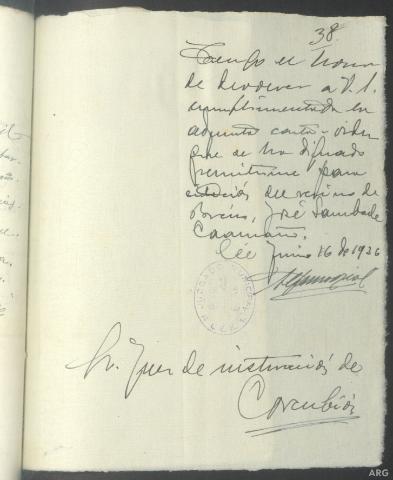 38.
Tengo el honor
de devolver a V. S.
cumplimentada la
adjunta carta-orden
que se ha dignado
remitirme para
citación del vecino de
José Sambade
Caamaño.
Cée Junio 16 de 1926
JUZGADO
Sr. Juez de instrucción de
Corcubión
ARG